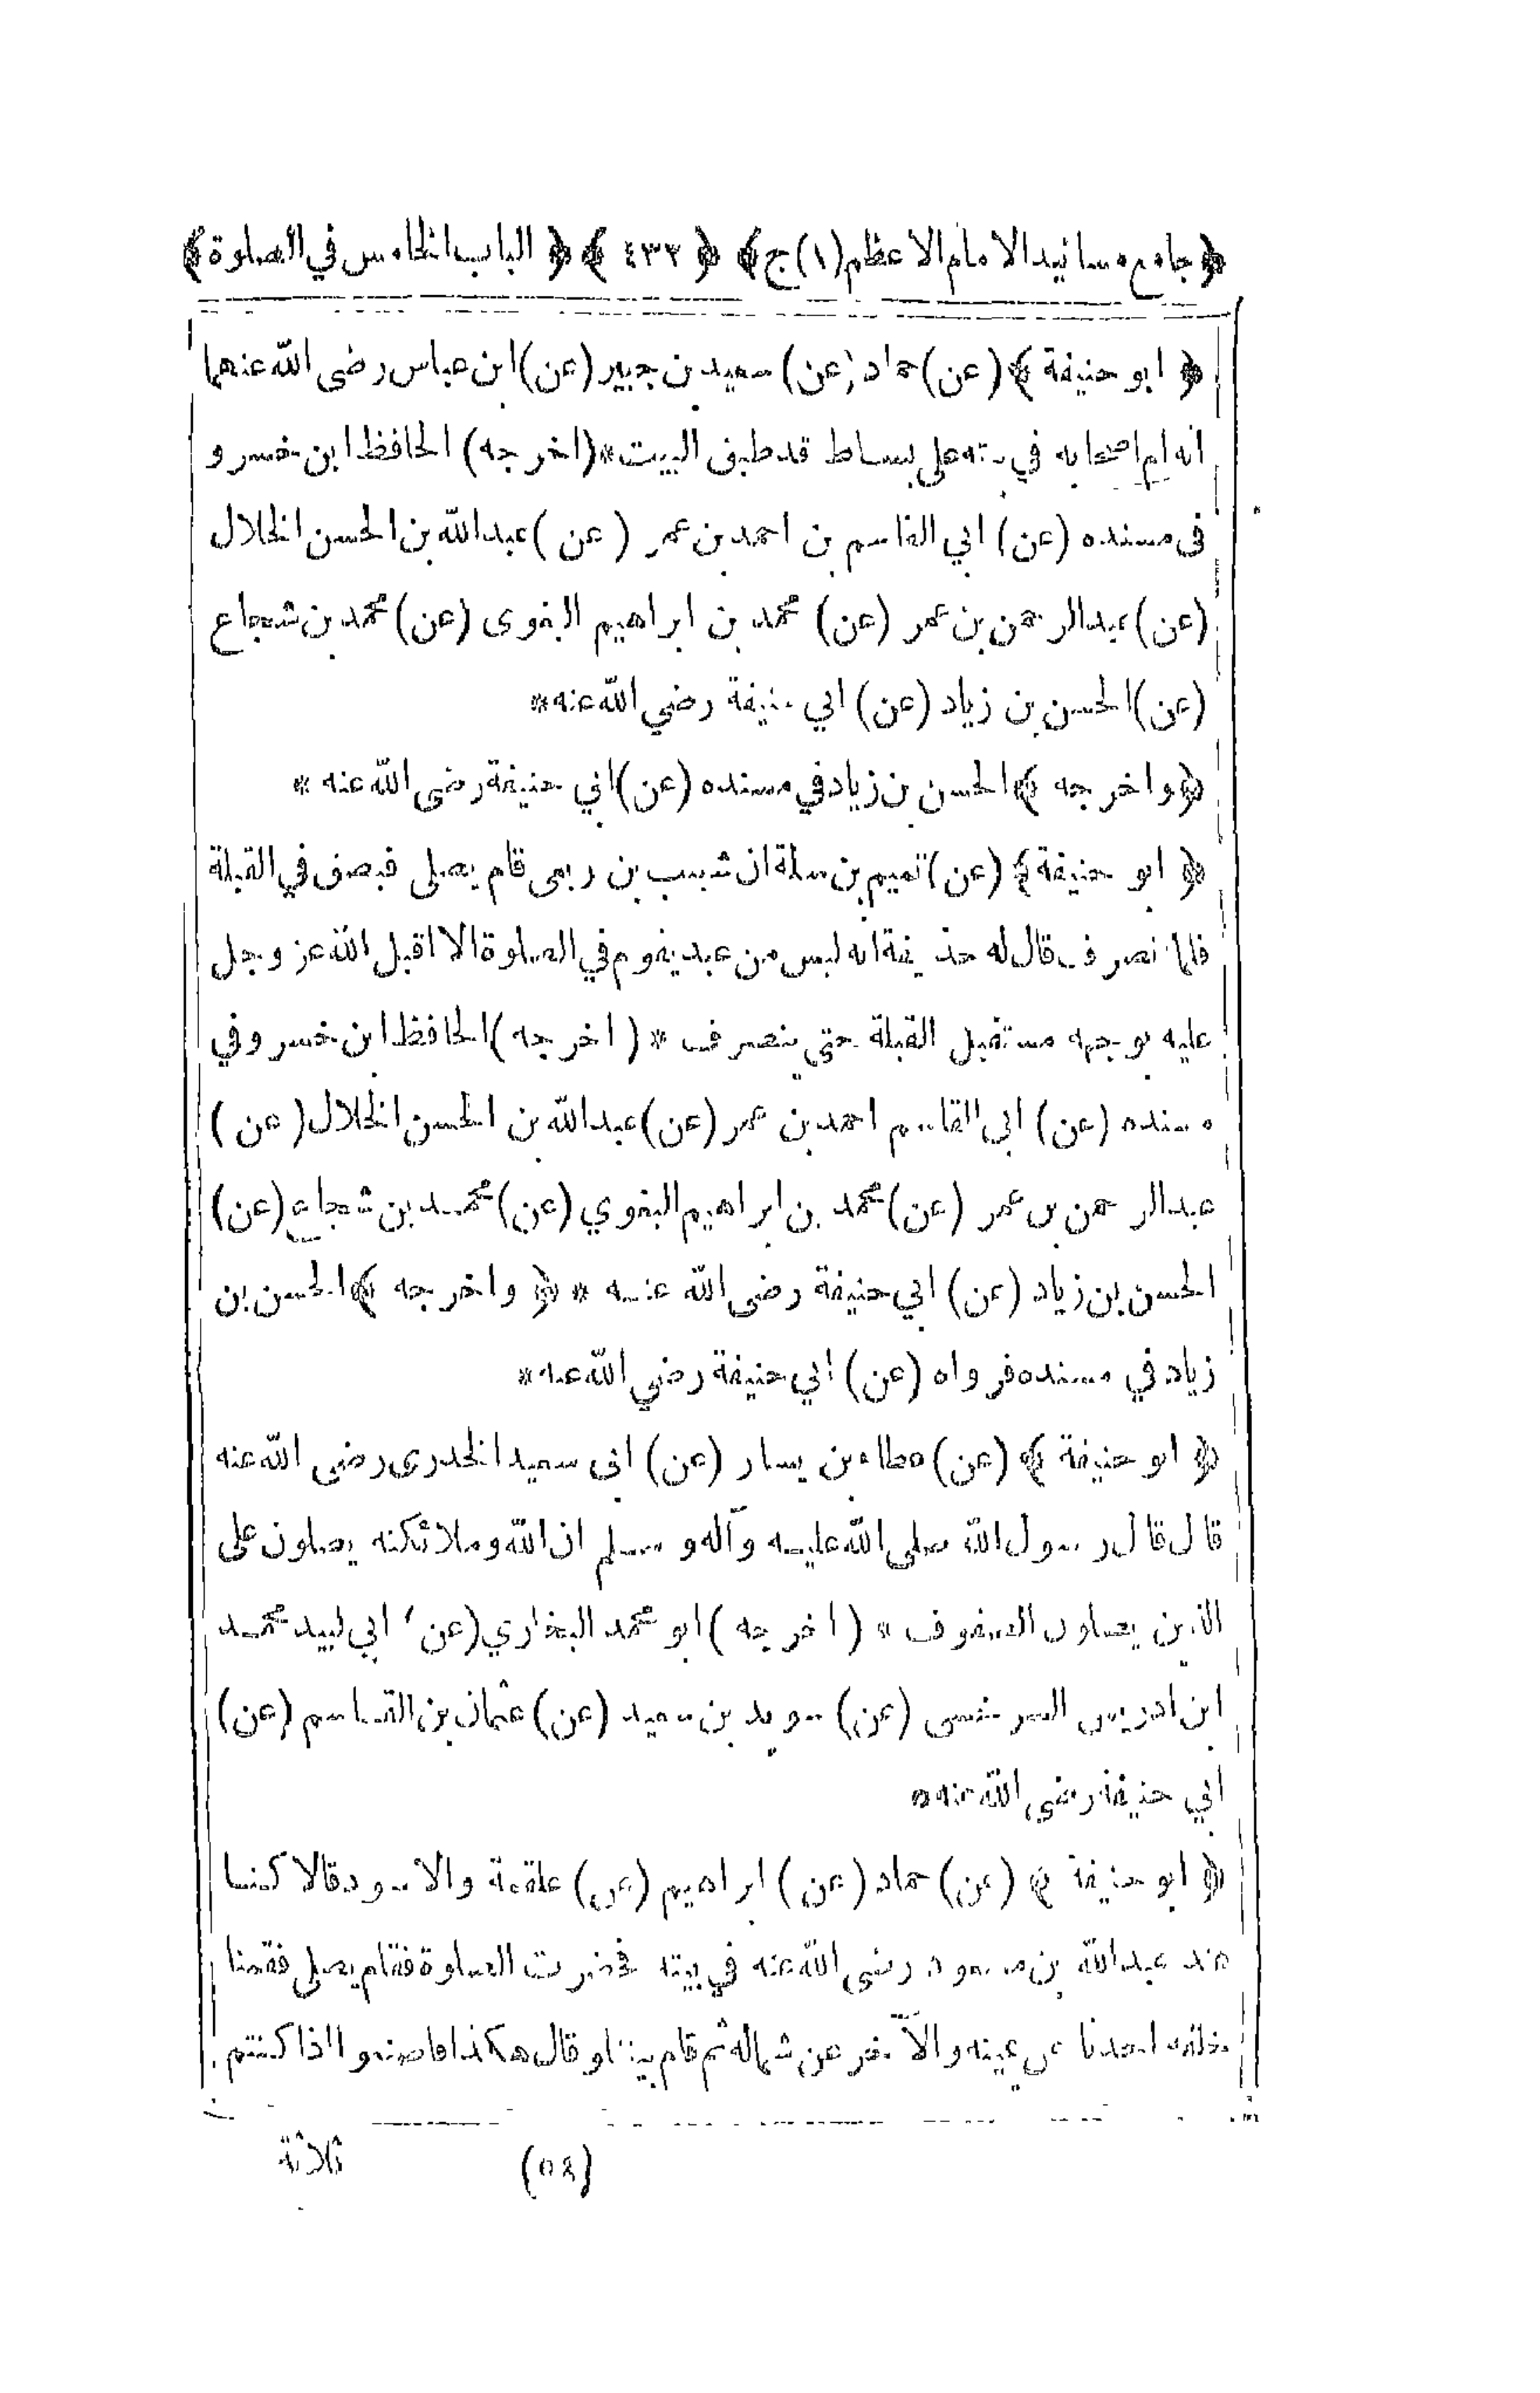 ﴿جامع مسانيد الامام الاعظم(١)ج﴾ ﴿ ٤٣٣ ﴾ ﴿ الباب الخامس في الصلوة﴾
﴿ ابو حنيفة ﴾ (عن) حماد (عن) سعيد بن جبير (عن) ابن عباس رضى الله عنهما
انه ام اصحابه في بيته على بساط قد طبق البيت *(اخرجه) الحافظ ابن خسرو
فى مسنده (عن) ابي القاسم بن احمد بن عمر (عن) عبدالله بن الحسن الخلال
(عن) عبدالرحمن بن عمر (عن) محمد بن ابراهيم البغوى (عن) محمد بن شجاع
(عن) الحسن بن زياد (عن) ابي حنيفة رضي الله عنه *
﴿واخرجه ﴾ الحسن بن زياد في مسنده (عن) ابي حنيفة رضى الله عنه *
﴿ ابو حنيفة ﴾ (عن) تميم بن سلمة ان شبيب بن ربعى قام يصلى فبصق في القبلة
فلما انصرف قال له حذيفة انه ليس من عبد يقوم في الصلوة الا اقبل الله عز وجل
عليه بوجهه مستقبل القبلة حتي ينصرف * ( اخرجه ) الحافظ ابن خسرو في
مسنده (عن) ابى القاسم احمد بن عمر (عن) عبدالله بن الحسن الخلال (عن )
عبدالرحمن بن عمر (عن) محمد بن ابراهيم البغوي (عن) محمد بن شجاع (عن)
الحسن بن زياد (عن) ابي حنيفة رضى الله عنه * ﴿ واخرجه ﴾ الحسن بن
زياد في مسنده فرواه (عن) ابي حنيفة رضي الله عنه *
﴿ ابو حنيفة ﴾ (عن) عطاء بن يسار (عن) ابى سعيد الخدرى رضى الله عنه
قال قال رسول الله صلى الله عليه وآله وسلم ان الله وملائكته يصلون على
الذين يصلون الصفوف * ( اخرجه ) ابو محمد البخاري (عن) ابي لبيد محمد
ابن ادريس السرخسى (عن) سويد بن سعيد (عن) عثمان بن القاسم (عن)
ابي حنيفة رضي الله عنه *
﴿ ابو حنيفة ﴾ (عن) حماد (عن) ابراهيم (عن) علقمة والاسود قالا كنا
عند عبدالله بن مسعود رضى الله عنه في بيته فحضرت الصلوة فقام يصلى فقمنا
خلفه احدنا عن يمينه والآخر عن شماله ثم قام بيننا وقال هكذا فاصنعوا اذا كنتم
(٥٤) ثلاثة